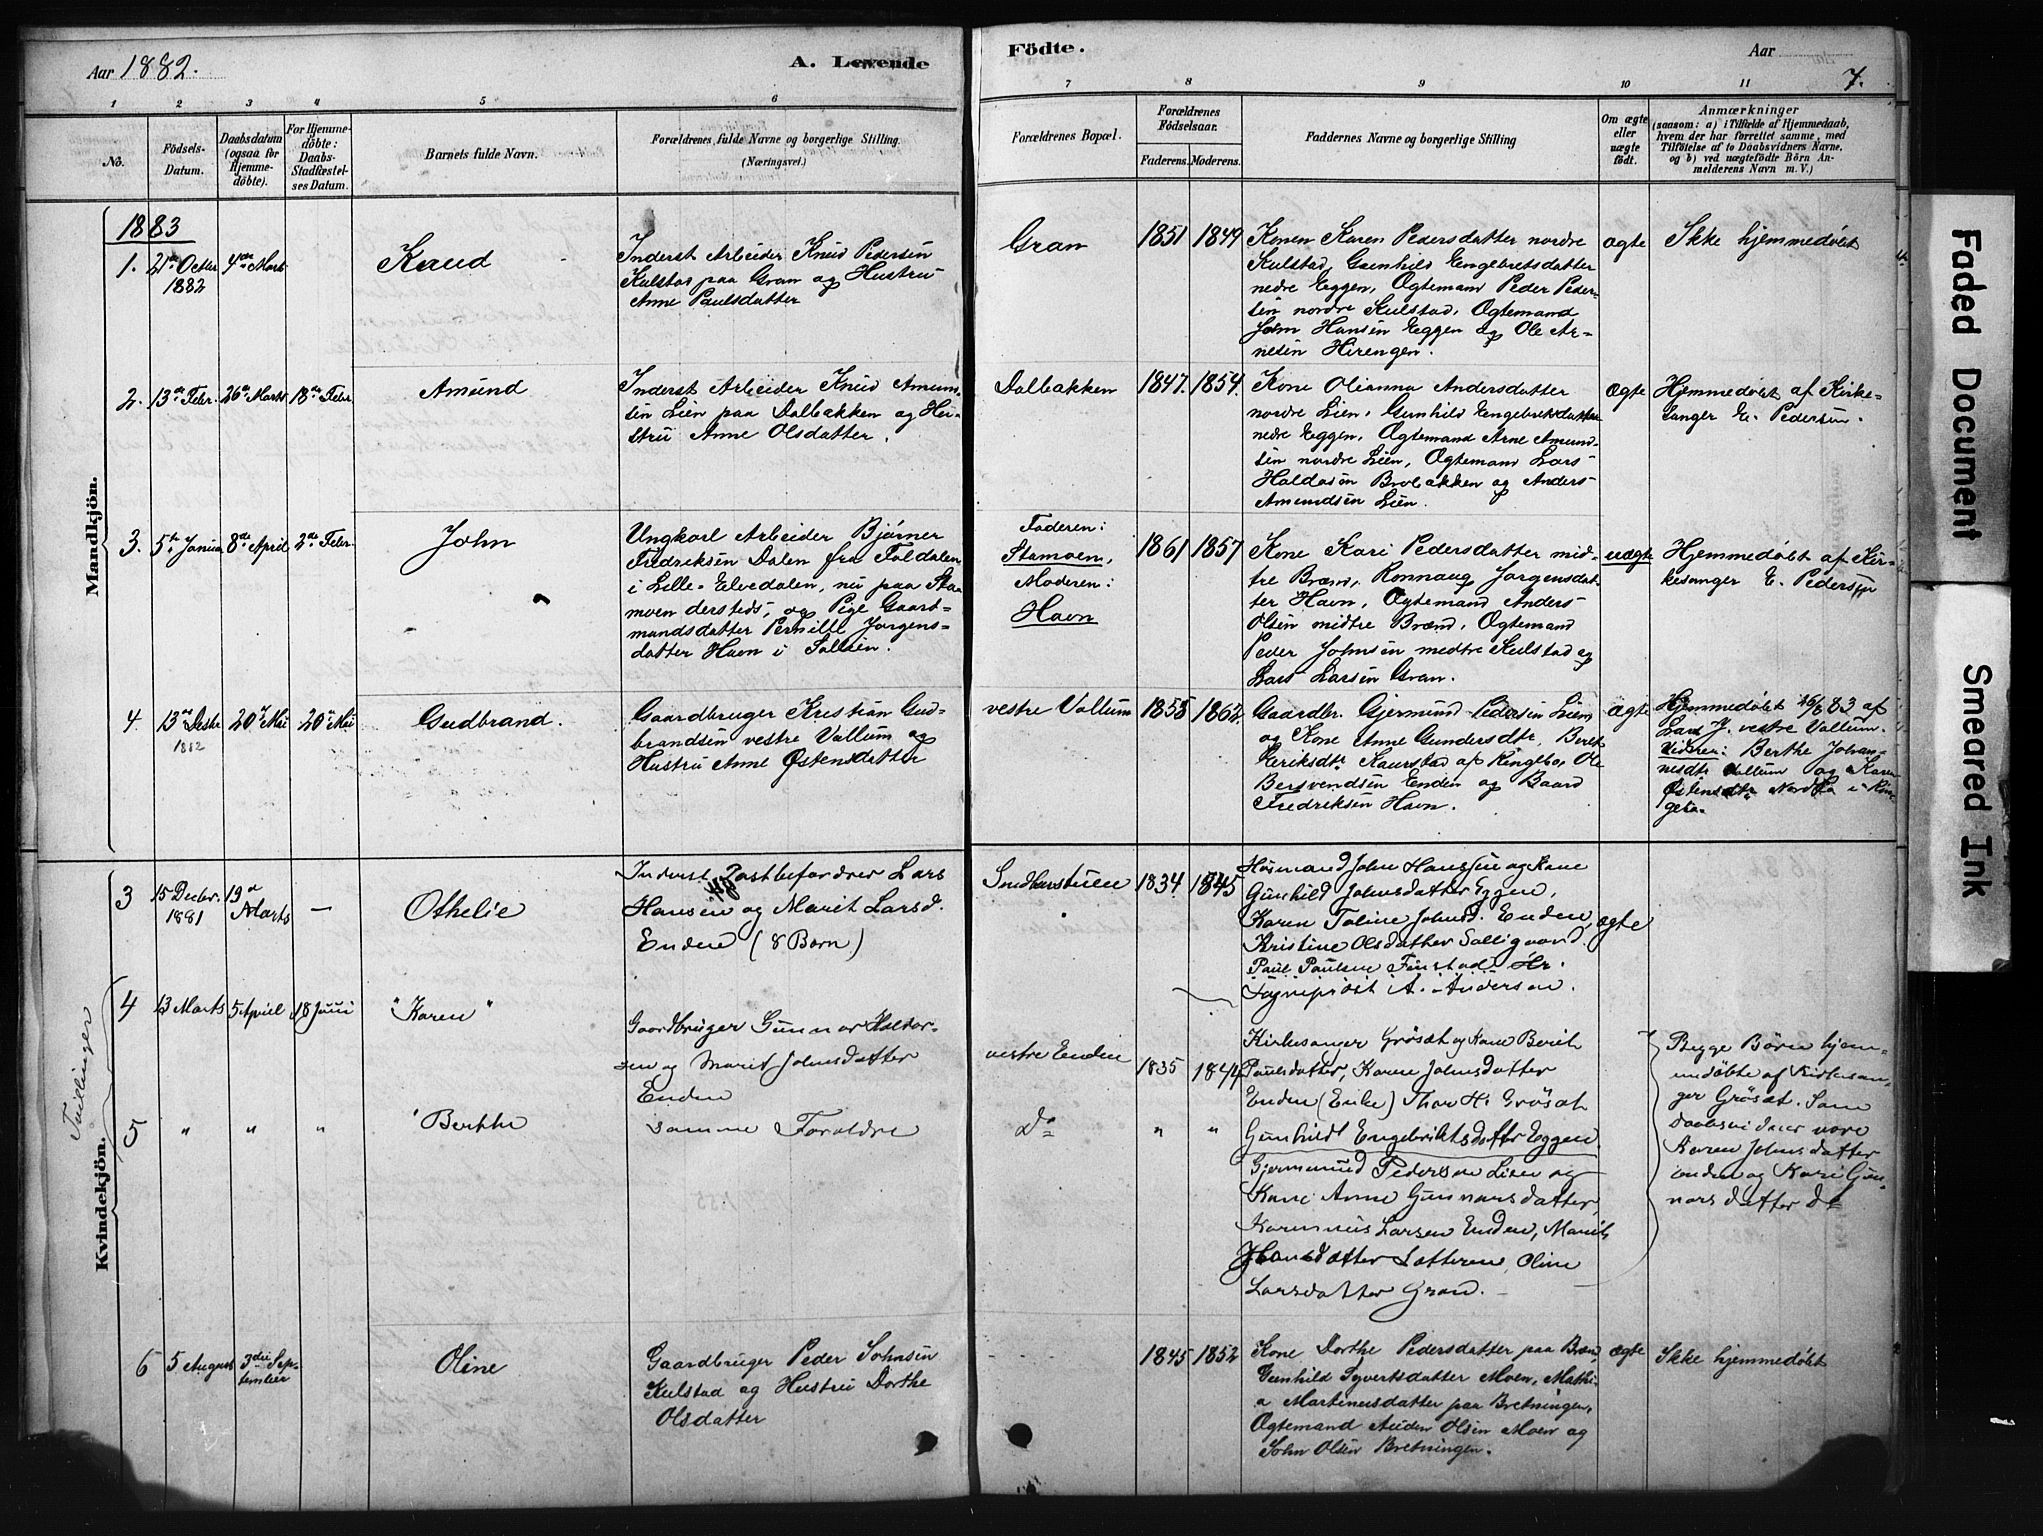 Aar 1882.
A. Levende
Födte.
Aar
7.
1 2 3 4 5 6 7 8 9 10 11
No.
Födsels-
Datum.
Daabsdatum
(ogsaa for
Hjemme-
döbte).
For Hjemme-
döbte:
Daabs-
Stadfæstel-
ses Datum.
Barnets fulde Navn.
Forældrenes fulde Navne og borgerlige Stilling
(Næringsvei.)
Forældrenes Bopæl.
Forældrenes
Födselsaar.
Faderens. Moderens.
Faddernes Navne og borgerlige Stilling
Om ægte
eller
uægte
födt.
Anmærkninger
(saasom: a) i Tilfælde af Hjemmedaab,
hvem der har forrettet samme, med
Tilföielse af to Daabsvidners Navne,
og b) ved uægtefödte Börn An-
melderens Navn m. V.)
Mandkjön.
1883
1. 21de Octbr
1882
4de Mart
Knud
Inderst Arbeider Knud Pedersen
Kulstad paa Gran og Hustru
Anne Paulsdatter
Gran
1851 1849
Konen Karen Pedersdatter nordre
Kulstad, Gunhild Engebretsdatter
nedre Eggen, Ogtemand Peder Peder-
sen nordre Kulstad, Ogtemand
John Hansen Eggen og Ole Ar-
nesen Hirengen.
ægte
Ikke hjemmedøbt
2. 13de Febr. 26de Marts 18de Febr.
Amund
Inderst Arbeider Knud Amund-
sen Lien paa Dalbakken og Hu-
stru Anne Olsdatter.
Dalbakken
1847. 1854.
Kone Olianna Andersdatter
nordre Lien, Gunhild Engebretsdatter
nedre Eggen, Ogtemand Arne Amund-
sen nordre Lien, Ogtemand Lars
Haldosen Brobakken og Anders
Amundsen Lien.
ægte
Hjemmedøbt af Kirke-
sanger E. Pedersen.
3. 5te Janua 8de April 2de Febr.
John
Ungkarl Arbeider Bjørner
Fredriksen Dalen fra Foldalen
i Lille-Elvedalen, nu paa Sta-
moen dersteds, og Pige Gaard-
mandsdatter Pernille Jørgens-
datter Havn i Sollien.
Faderen:
Stamoen,
Moderen:
Havn
1861 1857
Kone Kari Pedersdatter mid-
tre Brænd, Ronnaug Jørgensdat-
ter Havn, Ogtemand Anders
Olsen midtre Brænd, Ogtemand
Peder Johnsen medtre Kulstad og
Lars Larsen Gran.
uægte
Hjemmedøbt af Kir-
kesanger E. Pedersen
4. 13de Decbr
1882
20de Mai 20de Mai
Gudbrand.
Gaardbruger Kristian Gud-
brandsen vestre Vollum og
Hustru Anne Østensdatter
vestre Vollum
1858 1862
Gaardbr. Gjermund Pedersen Lien
og Kone Anne Gundersdtr, Berit
Eriksdtr Kaurstad af Ringebo, Ole
Bersvendsen Enden og Baard
Fredriksen Havn.
ægte
Hjemmedøbt 83 af
Lars J. vestre Vollum.
Vidner: Berthe Johan-
nesdtr Vollum og Karen
Østensdtr i Rin-
gebo.
Kvindekjön.
3 15 Decbr.
1881
19de
Marts
—
Othelie
Inderst Postbefordrer Lars
Hansen og Marit Larsd.
Enden (8 Børn)
1834 1845
Husmand John Hanssen og Kone
Gunhild Johnsdatter Eggen,
Karen Toline Johnsd. Enden,
Kristine Olsdatter Solligaard.
Paul Paulsen Finstad. Hr.
Sogneprest A. Andersen.
ægte
Tvillinger
4 13 Marts 5 April 18 Juni
"Karen"
Gaardbruger Gunnar Haldor-
sen og Marit Johnsdatter
Enden
vestre Enden
1835 1844
Kirkesanger Grösæt og Kone Berit
Paulsdatter, Karen Johnsdatter
Enden (Enke) Thor H. Grösæt
Gunhild Engebriktsdatter Eggen
Gjermund Pedersen Lien og
Kone Anne Gunnarsdatter,
Larsen Enden, Marit
Hansdatter Sætteren, Oline
Larsdatter Gran.
Begge Börn hjem-
medöbte af Kirkesan-
ger Grösæt. Som
daabsvidner vare
Karen Johnsdatter
Enden og Kari Gun-
narsdatter do
5 " " "
Berthe
samme Foreldre
Do
" "
6 5 August 3die Sep-
tember
Oline
Gaardbruger Peder Johnsen
Kulstad og Hustru Dorthe
Olsdatter
1845 1852
Kone Dorthe Pedersdatter paa Brænd,
Gunhild Syvertsdatter Moen, Mathi-
a Martinusdatter paa Bretningen,
Ogtemand Auden Olsen Moen og
John Olsen Bretningen.
ægte
Ikke hjemmedøbt
Faded Document
Smeared Ink